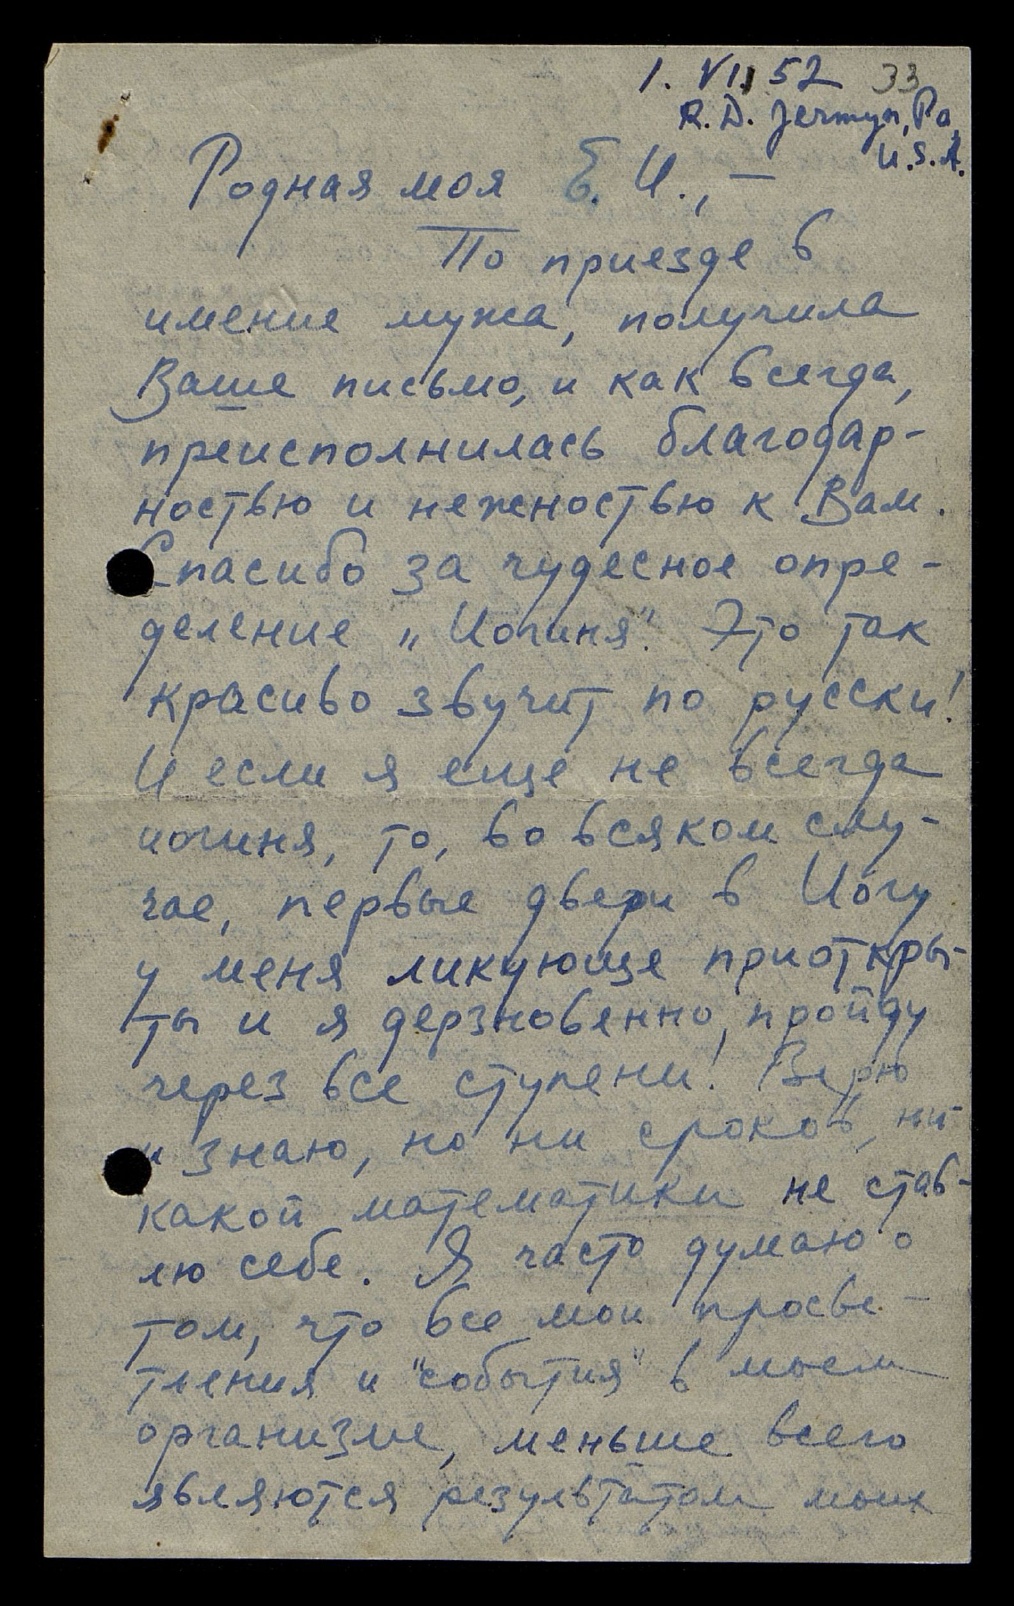 1. VI. 52 33
R. D. Jermyn, Pa,
U.S.A.
Родная моя Е. И., —
По приезде в
имение мужа, получила
Ваше письмо, и как всегда,
преисполнилась благодар-
ностью и нежностью к Вам.
Спасибо за чудесное опре-
деление „Иогиня". Это так
красиво звучит по русски!
И если я еще не всегда
иогиня, то, во всяком слу-
чае, первые двери в Иогу
у меня ликующе приоткры-
ты и я дерзновенно, пройду
через все ступени! Верю
и знаю, но ни сроков, ни-
какой математики не став-
лю себе. Я часто думаю о
том, что все мои просве-
тления и "события" в моем
организме, меньше всего
являются результатом моих